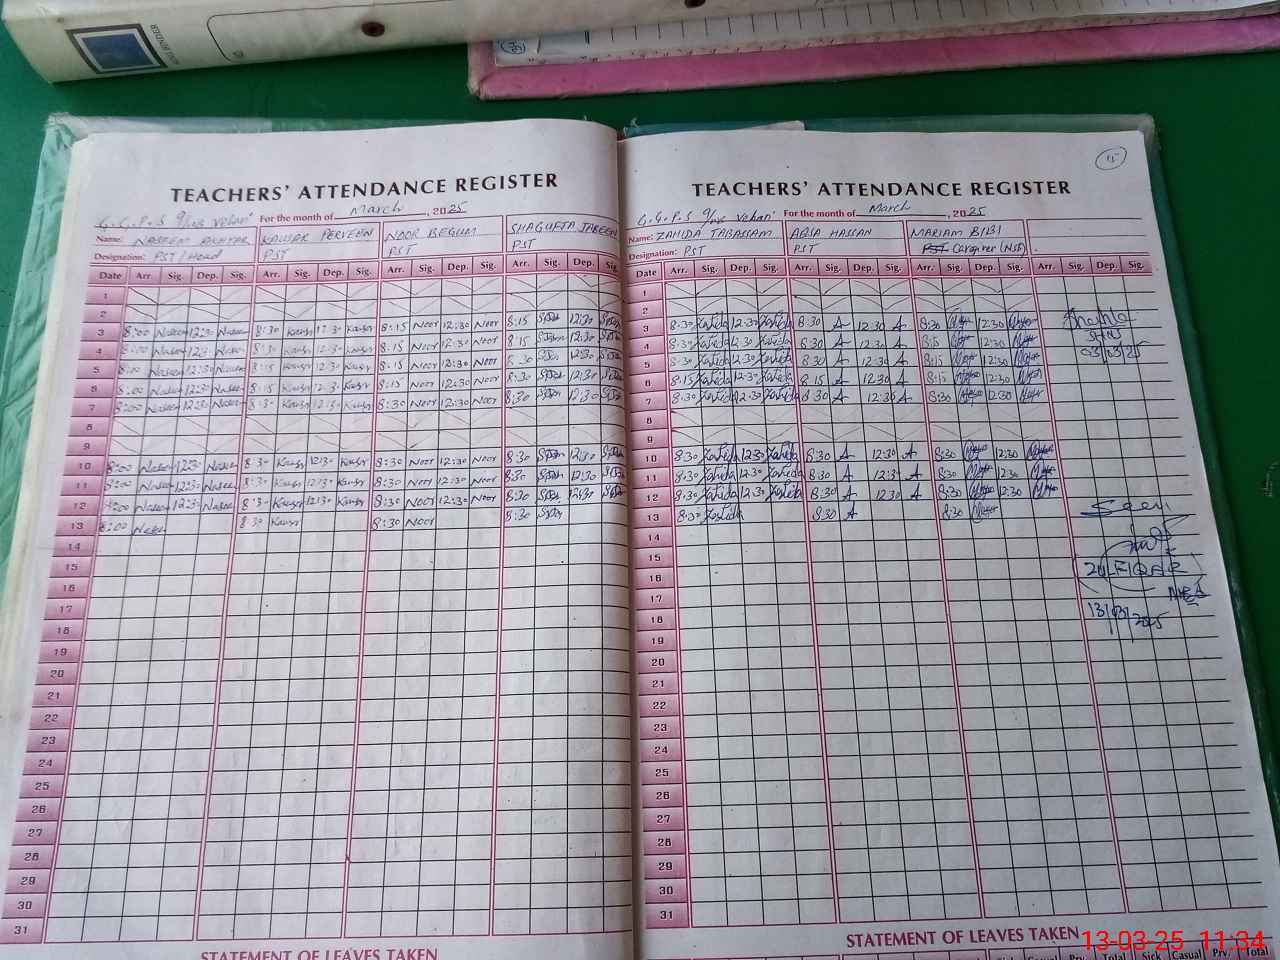 TEACHERS' ATTENDANCE REGISTER
G.G.P.S 9/WB Vehari For the month of March, 2025
Name: NASEEM AKHTAR KAUSAR PERVEEN NOOR BEGUM SHAGUFTA JABEEN
Designation: PST/Head PST PST PST
Date Arr. Sig. Dep. Sig. Arr. Sig. Dep. Sig. Arr. Sig. Dep. Sig. Arr. Sig. Dep. Sig.
1
2
3 8:00 Naseem 12:30 Naseem 8:30 Kausar 12:30 Kausar 8:15 Noor 12:30 Noor 8:15 12:30
4 8:00 Naseem 12:30 Naseem 8:30 Kausar 12:30 Kausar 8:15 Noor 12:30 Noor 8:15 12:30
5 8:00 Naseem 12:30 Naseem 8:15 Kausar 12:30 Kausar 8:15 Noor 12:30 Noor 8:30 12:30
6 8:00 Naseem 12:30 Naseem 8:15 Kausar 12:30 Kausar 8:15 Noor 12:30 Noor 8:30 12:30
7 8:00 Naseem 12:30 Naseem 8:30 Kausar 12:30 Kausar 8:30 Noor 12:30 Noor 8:30 12:30
8
9
10 8:00 Naseem 12:30 Naseem 8:30 Kausar 12:30 Kausar 8:30 Noor 12:30 Noor 8:30 12:30
11 8:00 Naseem 12:30 Naseem 8:30 Kausar 12:30 Kausar 8:30 Noor 12:30 Noor 8:30 12:30
12 8:00 Naseem 12:30 Naseem 8:30 Kausar 12:30 Kausar 8:30 Noor 12:30 Noor 8:30 12:30
13 8:00 Naseem 8:30 Kausar 8:30 Noor 8:30
14
15
16
17
18
19
20
21
22
23
24
25
26
27
28
29
30
31
STATEMENT OF LEAVES TAKEN
15
TEACHERS' ATTENDANCE REGISTER
G.G.P.S 9/WB Vehari For the month of March, 2025
Name: ZAHIDA TABASSAM ABSA HASSAN MARIAM BIBI
Designation: PST PST PST Caregiver (NSB)
Date Arr. Sig. Dep. Sig. Arr. Sig. Dep. Sig. Arr. Sig. Dep. Sig. Arr. Sig. Dep. Sig.
1
2
3 8:30 Zahida 12:30 Zahida 8:30 A 12:30 A 8:30 12:30
4 8:30 Zahida 12:30 Zahida 8:30 A 12:30 A 8:15 12:30
5 8:30 Zahida 12:30 Zahida 8:30 A 12:30 A 8:15 12:30
6 8:15 Zahida 12:30 Zahida 8:15 A 12:30 A 8:15 12:30
7 8:30 Zahida 12:30 Zahida 8:30 A 12:30 A 8:30 12:30
8
9
10 8:30 Zahida 12:30 Zahida 8:30 A 12:30 A 8:30 12:30
11 8:30 Zahida 12:30 Zahida 8:30 A 12:30 A 8:30 12:30
12 8:30 Zahida 12:30 Zahida 8:30 A 12:30 A 8:30 12:30
13 8:30 Zahida 8:30 A 8:30
14
15
16
17
18
19
20
21
22
23
24
25
26
27
28
29
30
31
03/03/25
Seen
(ZULFIQAR)
MEA
13/03/2025
STATEMENT OF LEAVES TAKEN
Sick Casual Prv. Total Sick Casual Prv. Total
13-03-25 11:34